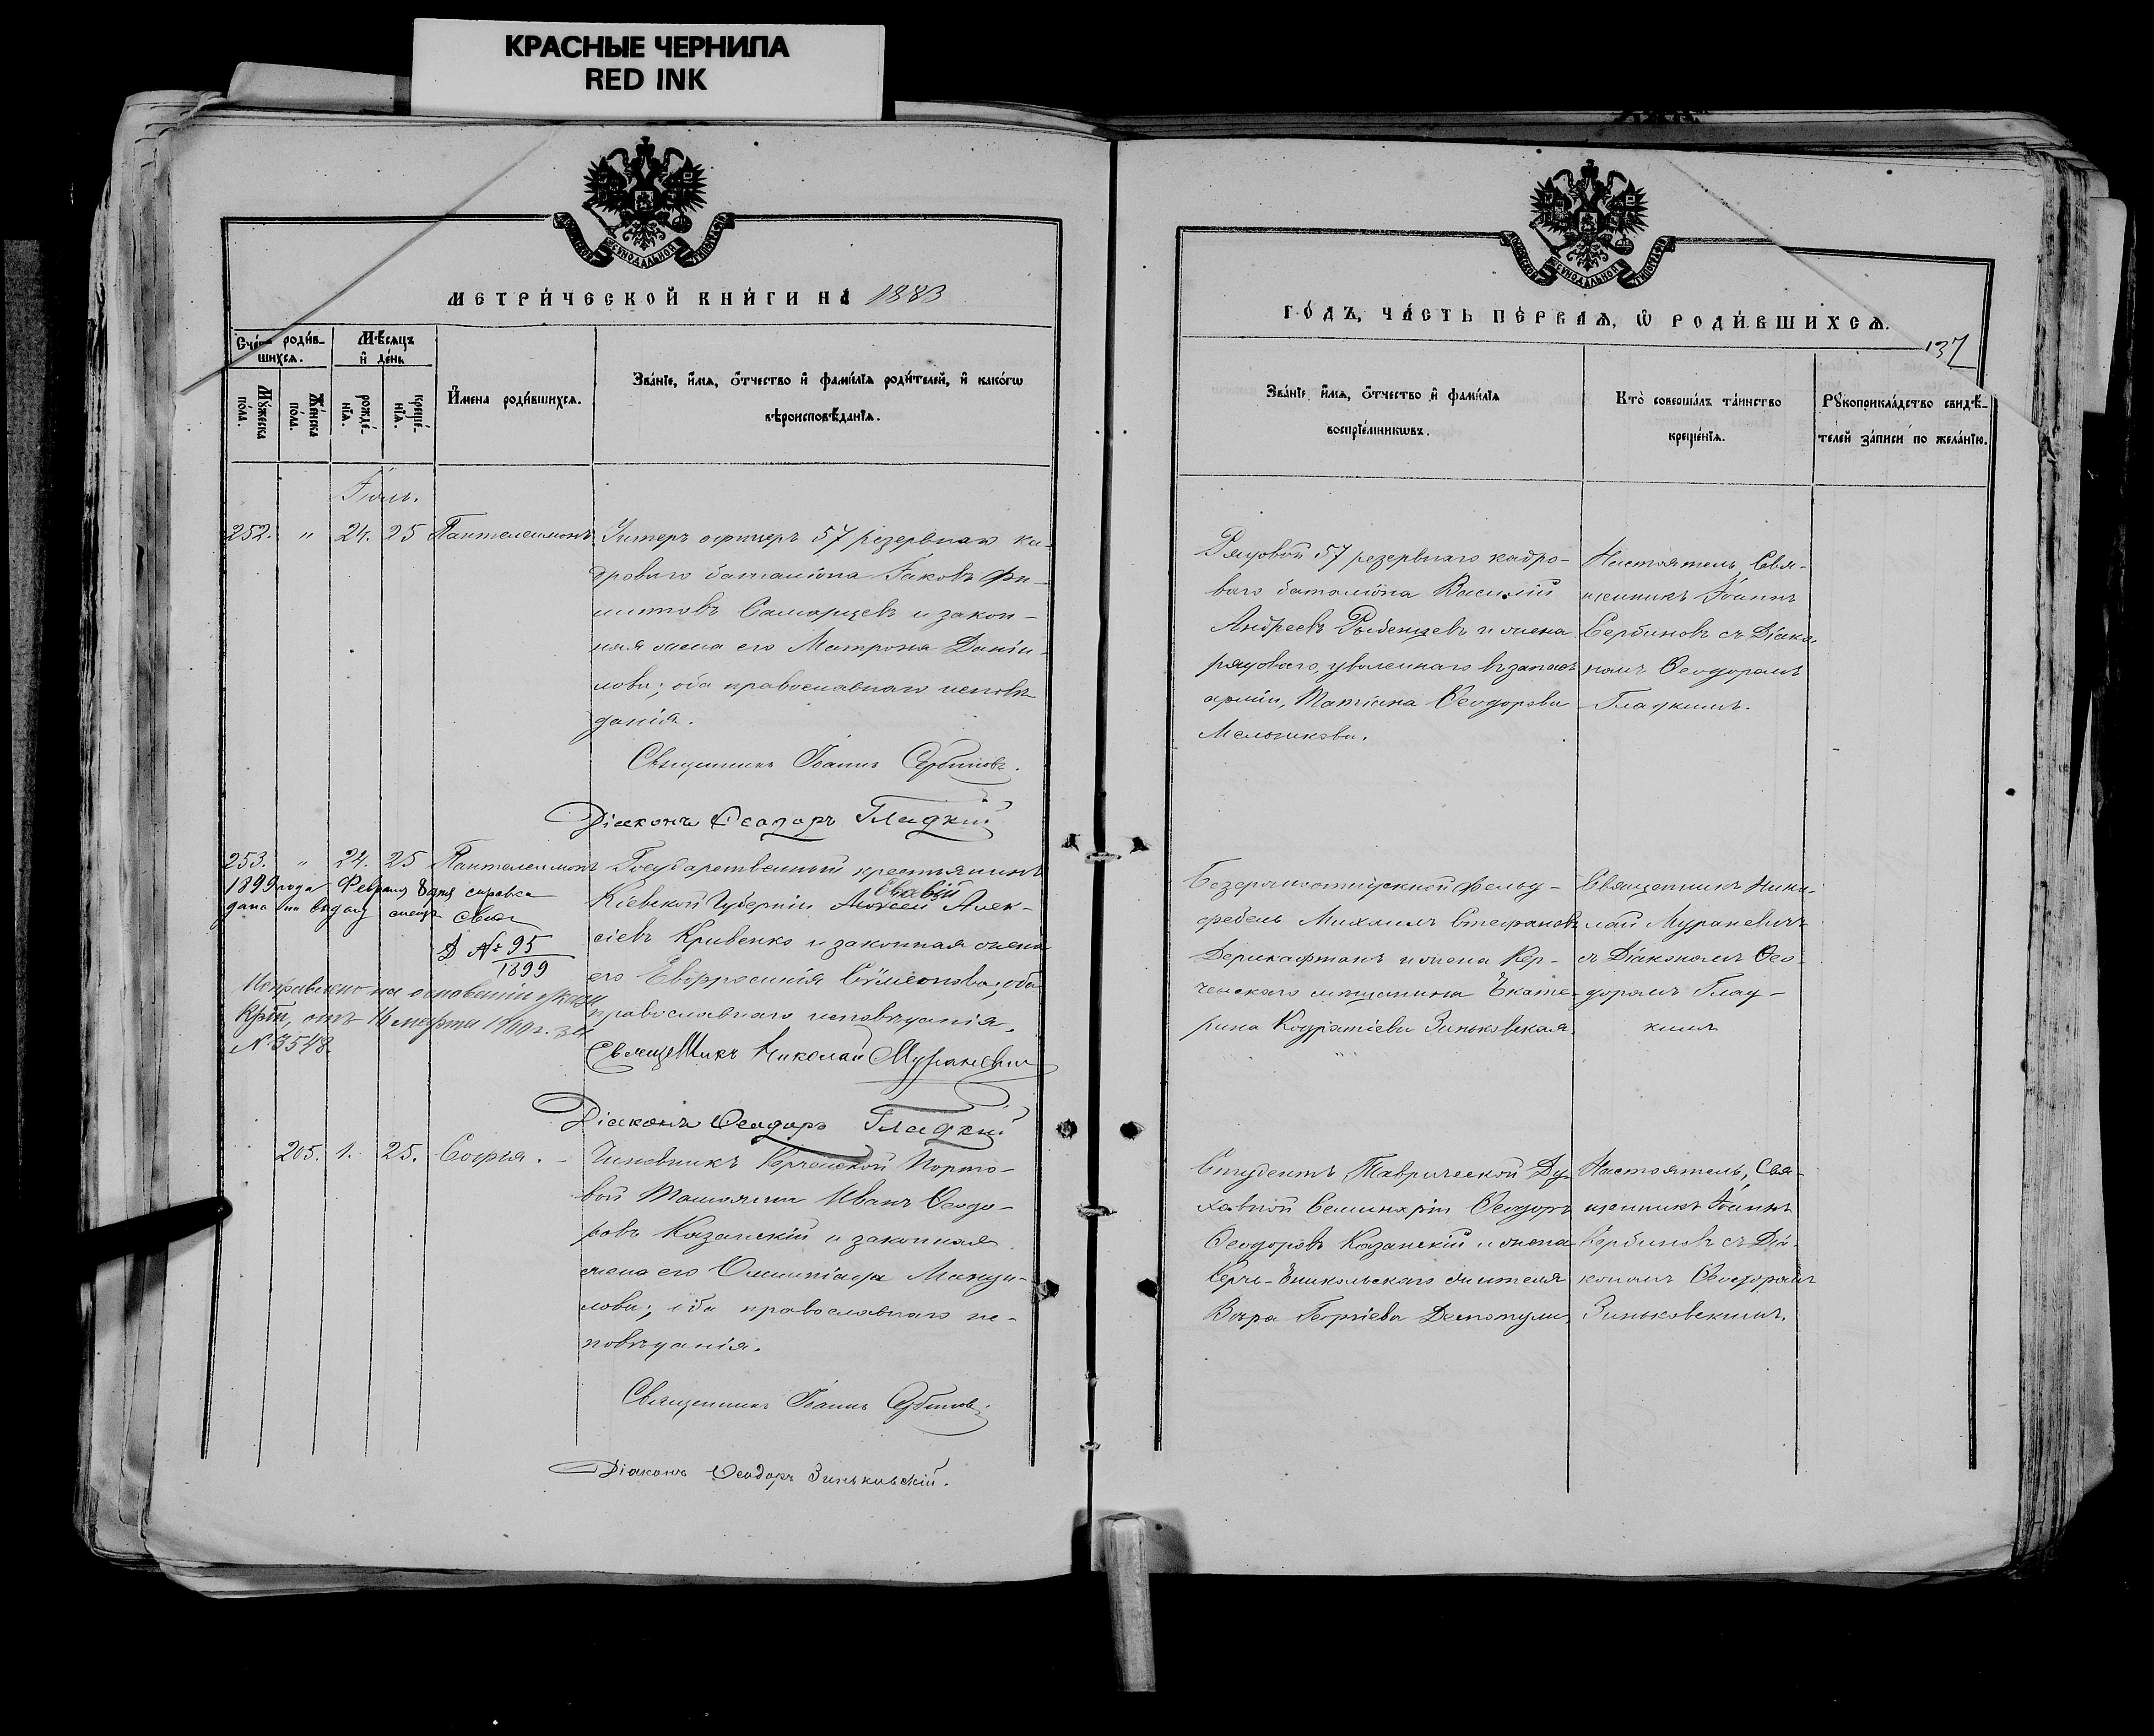 КРАСНЫЕ ЧЕРНИЛА
RED INK
МЕТРИ́ЧЕСКОЙ КНИ́ГИ НА 1883
Сче́тъ роди́в-
шихся.
Мѣ́сяцъ
и҆ де́нь
Мꙋ́жеска по́ла.
Же́нска по́ла.
рожде́-
нїѧ.
креще́-
нїѧ.
И҆мена роди́вшихсѧ.
Зва́нїе, и҆́мѧ, ѻ҆́тчество и҆ фами́лїѧ роди́телей, и҆ како́гѡ
вѣроисповѣ́данїѧ.
Іюль.
252. " 24. 25 Пантелеимонъ Унтеръ офицеръ 57 резервнаго ка-
дроваго баталіона Іаковъ Фи-
липповъ Самарцевъ и закон-
ная жена его Матрона Даніи-
лова; оба православнаго исповѣ-
данія.
Священникъ Іоаннъ Сербиновъ.
Діаконъ Ѳеодоръ Гладкій
253. " 24. 25 Пантелеимонъ Государственный крестьянинъ
Кіевской Губерніи Моѵсей Алек-
сіевъ Кривенко и законная жена
его Евфросинія Сѵмеонова; оба
православнаго исповѣданія.
1899 года Февраля 8 дня справка
дана на выдачу
№ 95
1899
Исправлено на основаніи указа
отъ 16 марта 19 г. за
№ 3548.
Священникъ Николай Мураневичъ
Діаконъ Ѳеодоръ Гладкій
205. 1. 25. Софія. Чиновникъ Керченской Порто-
вой Таможни Иванъ Ѳеодо-
ровъ Казанскій и законная
жена его Олимпіада Мануи-
лова; оба православнаго ис-
повѣданія.
Священникъ Іоаннъ Сербиновъ.
Діаконъ Ѳеодоръ Зиньковскій.
ГО́ДЪ, ЧА́СТЬ ПЕ́РВАѦ, Ѡ҆ РОДИ́ВШИХСѦ.
137
Зва́нїе, и҆́мѧ, ѻ҆́тчество и҆ фами́лїѧ
воспрїе́мникѡвъ.
Кто̀ соверша́лъ та́инство
креще́нїѧ.
Рꙋкоприкла́дство свидѣ́-
телей за́писи по жела́нїю.
Рядовой 57 резервнаго кадро-
ваго баталіона Василій
Андреевъ Рыбенцевъ и жена
рядоваго, уволеннаго въ запасъ
арміи, Татіана Ѳеодорова
Мельникова.
Настоятель, Свя-
щенникъ Іоаннъ
Сербиновъ съ Діако-
номъ Ѳеодоромъ
Гладкимъ.
Безсрочноотпускной фельд-
фебель Михаилъ Стефановъ
Дерикафтанъ и жена Кер-
ченскаго мѣщанина Екате-
рина Кодратіева Зиньковская
Священникъ Нико-
лай Мураневичъ
съ Діакономъ Ѳео-
доромъ Глад-
кимъ
Студентъ Таврической Ду-
ховной Семинаріи Ѳеодоръ
Ѳеодоровъ Казанскій и жена
Керчь-Еникольскаго жителя
Вѣра Георгіева Деспотули
Настоятель, Свя-
щенникъ Іоаннъ
Сербиновъ съ Діа-
кономъ Ѳеодоромъ
Зиньковскимъ.